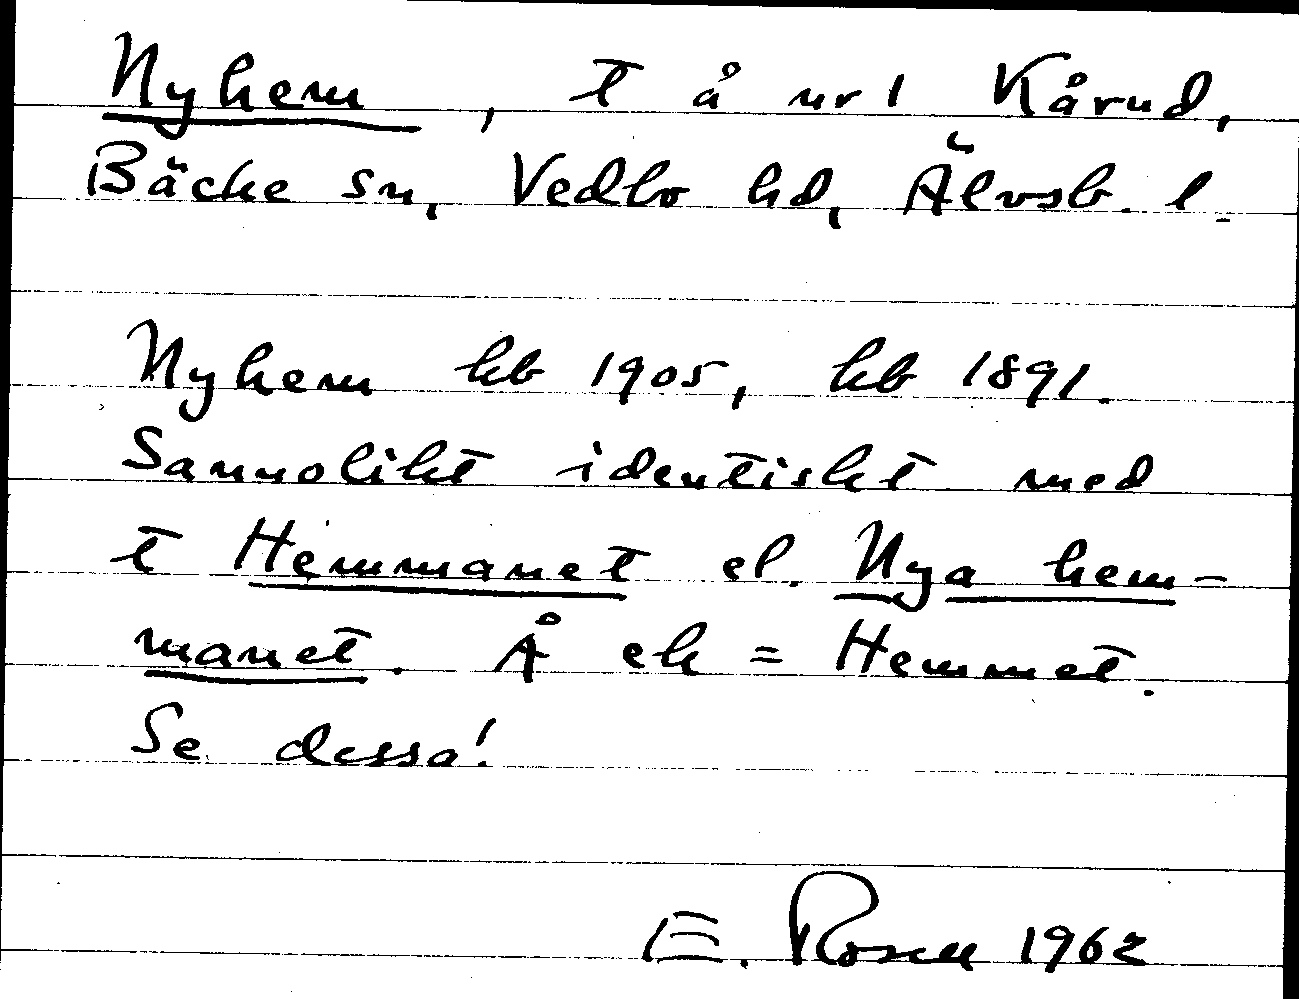 Nyhem, t å nr 1 Kårud,
Bäcke sn, Vedbo hd, Älvsb. l.
Nyhem hb 1905, hb 1891.
Sannolikt identiskt med
t Hemmanet el. Nya hem-
manet. Å ek = Hemmet.
Se dessa!
E. Rosell 1962